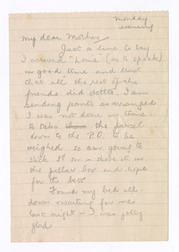 Monday
evening
My dear Mother
Just a line to say
I arrived "home" (so to speak)
in good time and
that all the rest of the
friends did ditto. I am
sending pants as arranged
I was not down in time
to take the parcel
down to the P.O. to be
weighed so am going to
stick on a
the pillar box and hope
for the best
Found my bed all
down waiting for me
last night - I was jolly
glad